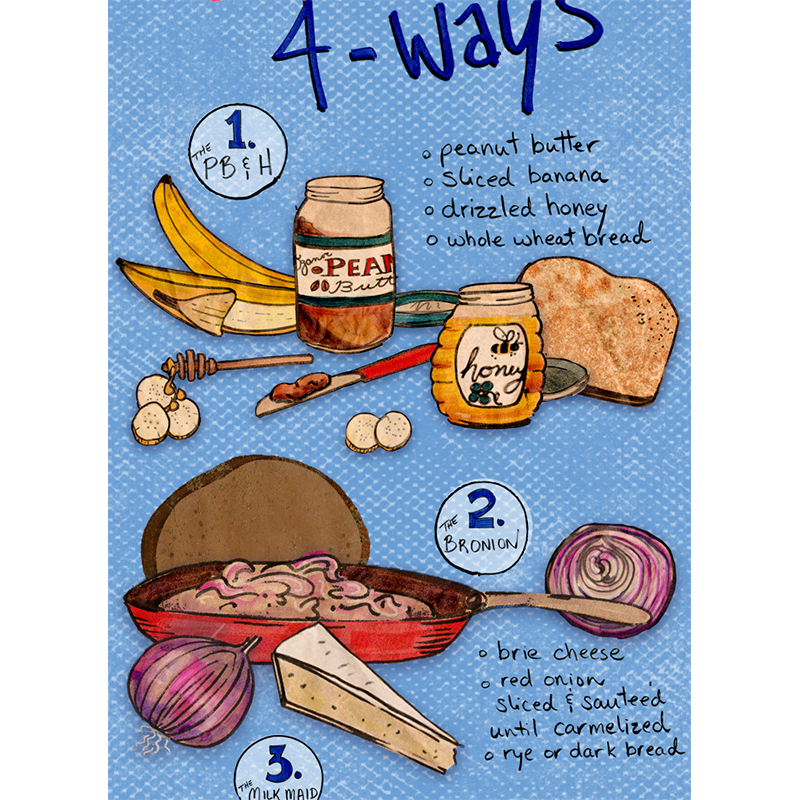 4-ways
1.
THE
PB & H
peanut butter
sliced banana
drizzled honey
whole wheat bread
PEAN
Butt
honey
2.
THE
BRONION
brie cheese
red onion
sliced & sauteéd
until carmelized
rye or dark bread
3.
THE
MILK MAID